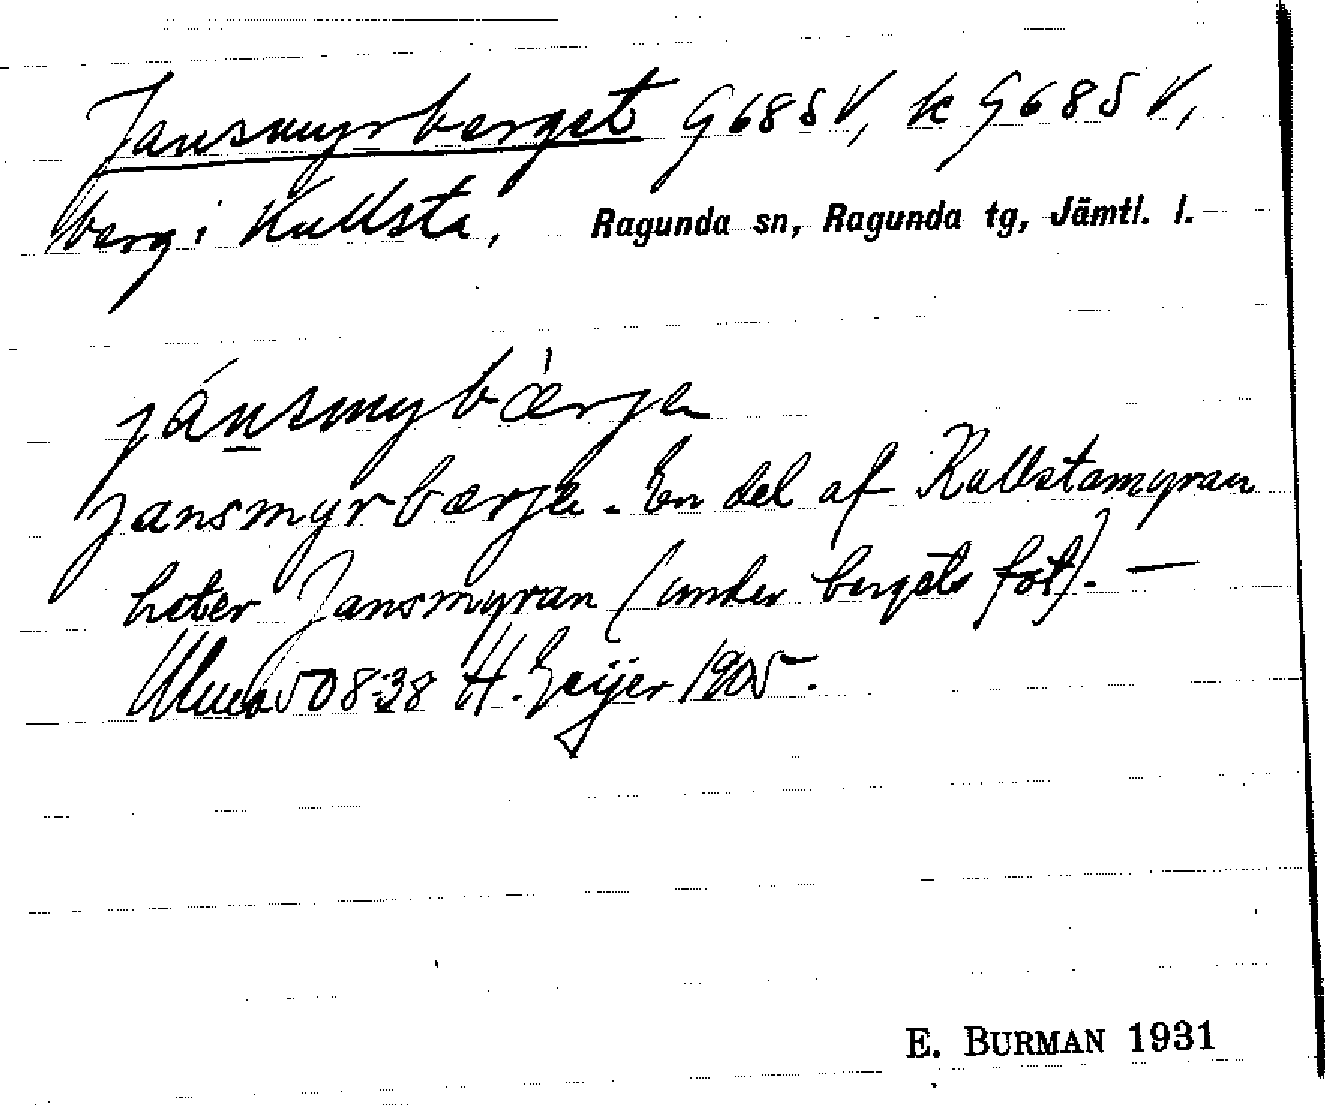 Jansmyrberget G 68 S V, k G 68 S V,
berg i Kullsta, Ragunda sn, Ragunda tg, Jämtl. l.
jánsmybærje
jansmyrbærje. En del af Kullstamyran
heter Jansmyran (under bergets fot). —
508:38 H. Geijer 1905.
E. BURMAN 1931